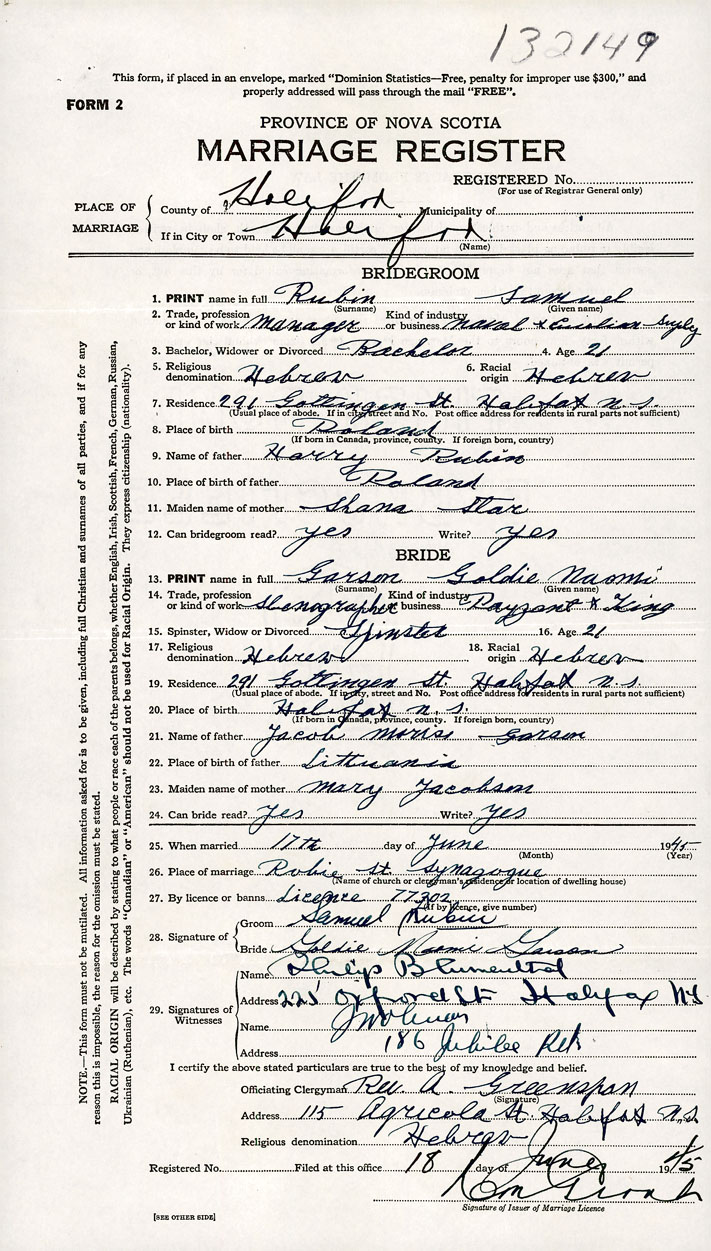 132149
This form, if placed in an envelope, marked “Dominion Statistics—Free, penalty for improper use $300,” and
properly addressed will pass through the mail “FREE”.
FORM 2
PROVINCE OF NOVA SCOTIA
MARRIAGE REGISTER
REGISTERED No.
(For use of Registrar General only)
PLACE OF MARRIAGE
County of Halifax Municipality of
If in City or Town Halifax
(Name)
BRIDEGROOM
1. PRINT name in full Rubin Samuel
(Surname) (Given name)
2. Trade, profession or kind of work Manager Kind of industry or business Naval & Civilian Supply
3. Bachelor, Widower or Divorced Bachelor 4. Age 21
5. Religious denomination Hebrew 6. Racial origin Hebrew
7. Residence 291 Gottingen St. Halifax N.S.
(Usual place of abode. If in city, street and No. Post office address for residents in rural parts not sufficient)
8. Place of birth Poland
(If born in Canada, province, county. If foreign born, country)
9. Name of father Harry Rubin
10. Place of birth of father Poland
11. Maiden name of mother Shana Star
12. Can bridegroom read? yes Write? yes
BRIDE
13. PRINT name in full Garson Goldie Naomi
(Surname) (Given name)
14. Trade, profession or kind of work Stenographer Kind of industry or business Payzant & King
15. Spinster, Widow or Divorced Spinster 16. Age 21
17. Religious denomination Hebrew 18. Racial origin Hebrew
19. Residence 291 Gottingen St. Halifax N.S.
(Usual place of abode. If in city, street and No. Post office address for residents in rural parts not sufficient)
20. Place of birth Halifax N.S.
(If born in Canada, province, county. If foreign born, country)
21. Name of father Jacob Morris Garson
22. Place of birth of father Lithuania
23. Maiden name of mother Mary Jacobson
24. Can bride read? Yes Write? Yes
25. When married 17th day of June 1945
(Month) (Year)
26. Place of marriage Robie St. Synagogue
(Name of church or clergyman's residence or location of dwelling house)
27. By licence or banns Licence 77302
(If by licence, give number)
28. Signature of
Groom Samuel Rubin
Bride Goldie Naomi Garson
29. Signatures of Witnesses
Name Philip Blumenthal
Address 225 Oxford St Halifax NS
Name
Address 186 Jubilee Rd.
I certify the above stated particulars are true to the best of my knowledge and belief.
Officiating Clergyman Rev. A. Greenspan
(Signature)
Address 115 Agricola St. Halifax N.S.
Religious denomination Hebrew
Registered No. Filed at this office 18 day of June 1945
Signature of Issuer of Marriage Licence
[SEE OTHER SIDE]
NOTE.—This form must not be mutilated. All information asked for is to be given, including full Christian and surnames of all parties, and if for any
reason this is impossible, the reason for the omission must be stated.
RACIAL ORIGIN will be described by stating to what people or race each of the parents belongs, whether English, Irish, Scottish, French, German, Russian,
Ukrainian (Ruthenian), etc. The words “Canadian” or “American” should not be used for Racial Origin. They express citizenship (nationality).